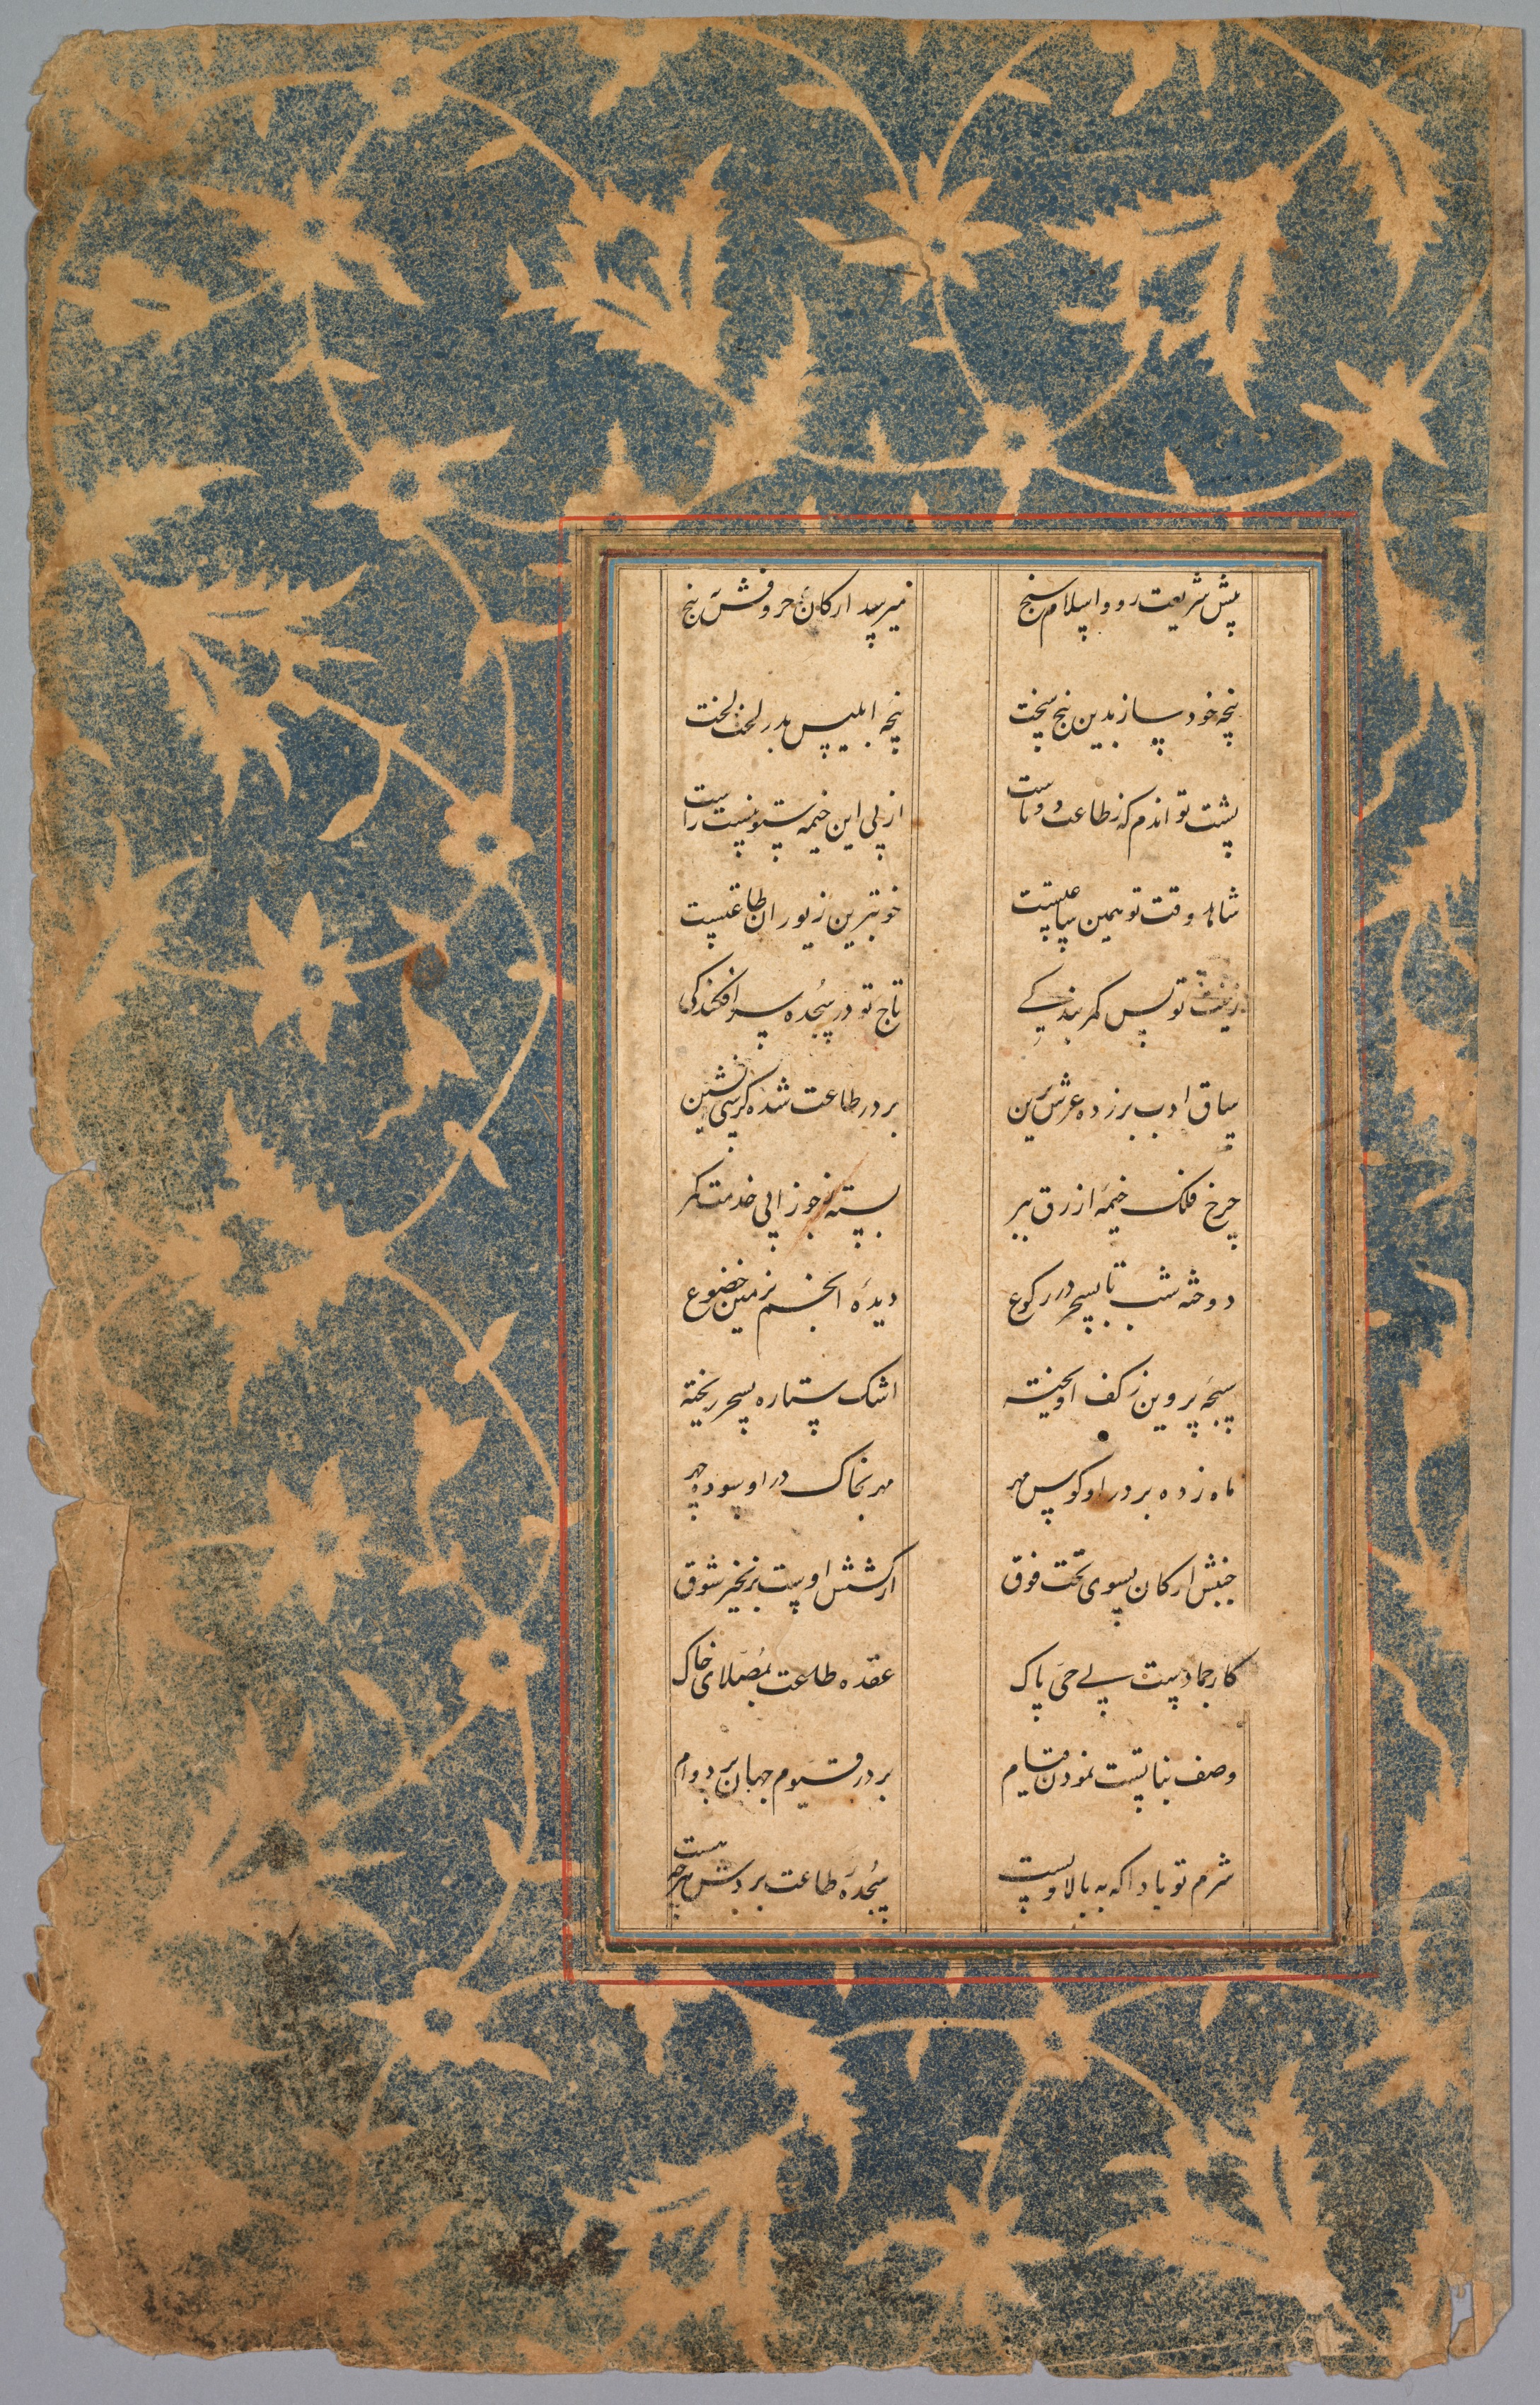 پیش شریعت رو و اسلام سنج میرسد ارکان حروفش به پنج
پنجه خود ساز بدین پنج سخت پنجه ابلیس بدر لخت لخت
پشت تو اندم که ز طاعت دوتاست از پی این خیمه ستونیست راست
شاها وقت تو همین ساعتست خوبترین زیور ان طاعتست
زینت تو بس کمر بندگی تاج تو در سجده سر افکندگی
ساق ادب بر زده عرش برین بر در طاعت شده کرسی نشین
چرخ فلک خیمه ازرق ببر بسته ز جوزا پی خدمت کمر
دوخته شب تا بسحر در رکوع دیده انجم بزمین خضوع
سبحه پروین ز کف اویخته اشک ستاره بسحر ریخته
ماه زده بر در او کوس مهر مهر بخاک در او سوده چهر
جنبش ارکان بسوی تحت و فوق از کشش اوست بزنجیر شوق
کار جمادست پی حی پاک عقده طاعت بمصلای خاک
وصف نباتست نمودن قیام بر در قیوم جهان بر دوام
شرم تو بادا که به بالا و پست سجده طاعت بردش هرچه هست